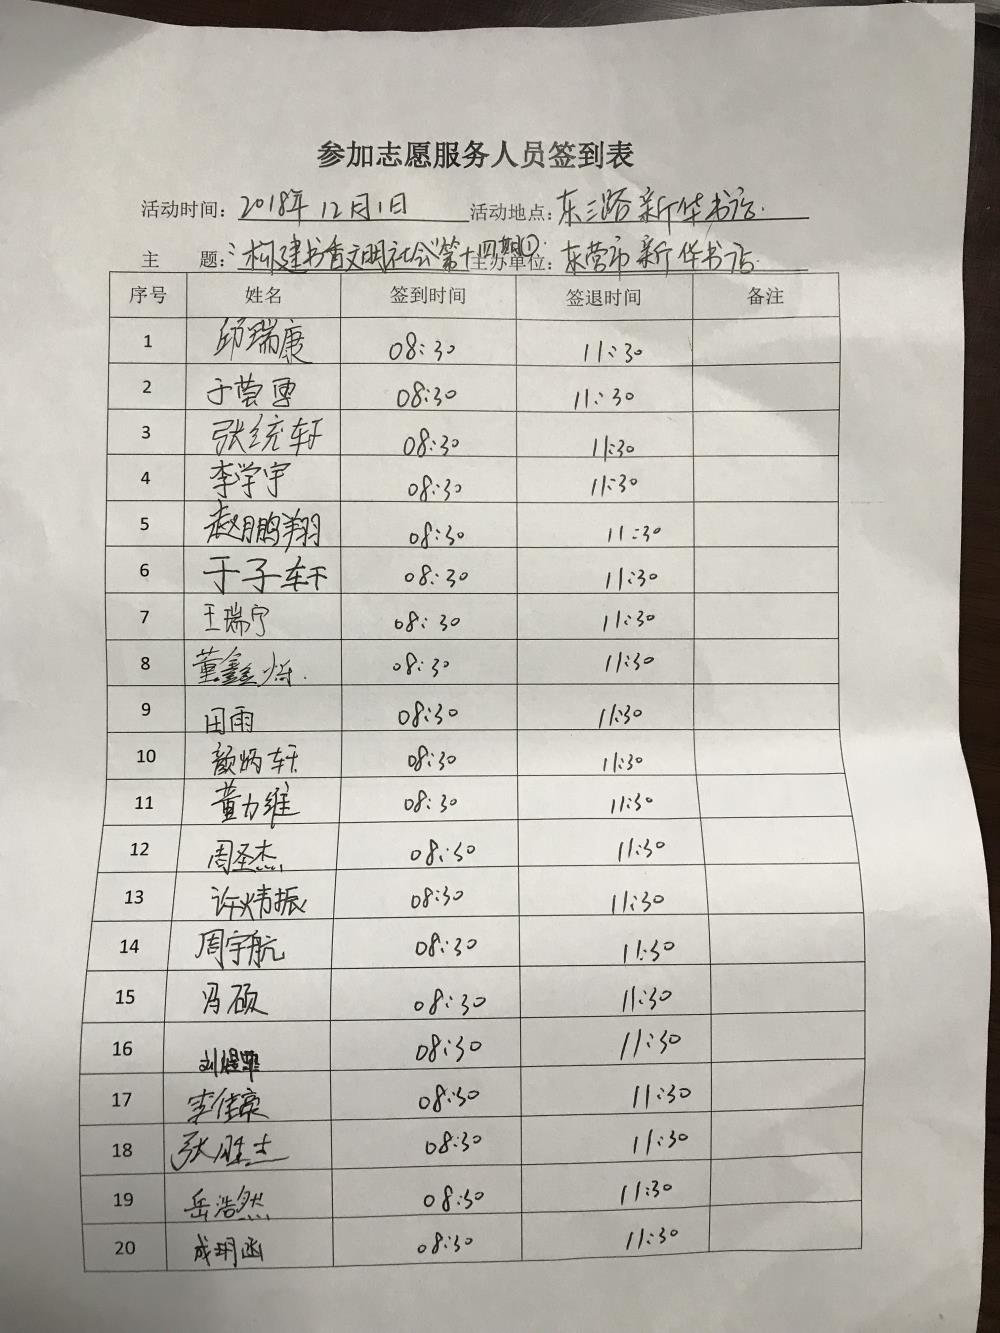 参加志愿服务人员签到表
活动时间: 2018年12月1日 活动地点: 东三路新华书店.
主 题: "构建书香文明社会"第十四期① 主办单位: 东营市新华书店.
序号 姓名 签到时间 签退时间 备注
1 邱瑞康 08:30 11:30
2 于蕓 08:30 11:30
3 张统轩 08:30 11:30
4 李学宇 08:30 11:30
5 赵鹏翔 08:30 11:30
6 于子轩 08:30 11:30
7 王瑞宁 08:30 11:30
8 董鑫 08:30 11:30
9 田雨 08:30 11:30
10 颜炳轩 08:30 11:30
11 黄力维 08:30 11:30
12 周圣杰 08:30 11:30
13 许炜振 08:30 11:30
14 周宇航 08:30 11:30
15 冯硕 08:30 11:30
16 刘煜 08:30 11:30
17 李佳豪 08:30 11:30
18 张胜杰 08:30 11:30
19 岳浩然 08:30 11:30
20 成玥函 08:30 11:30